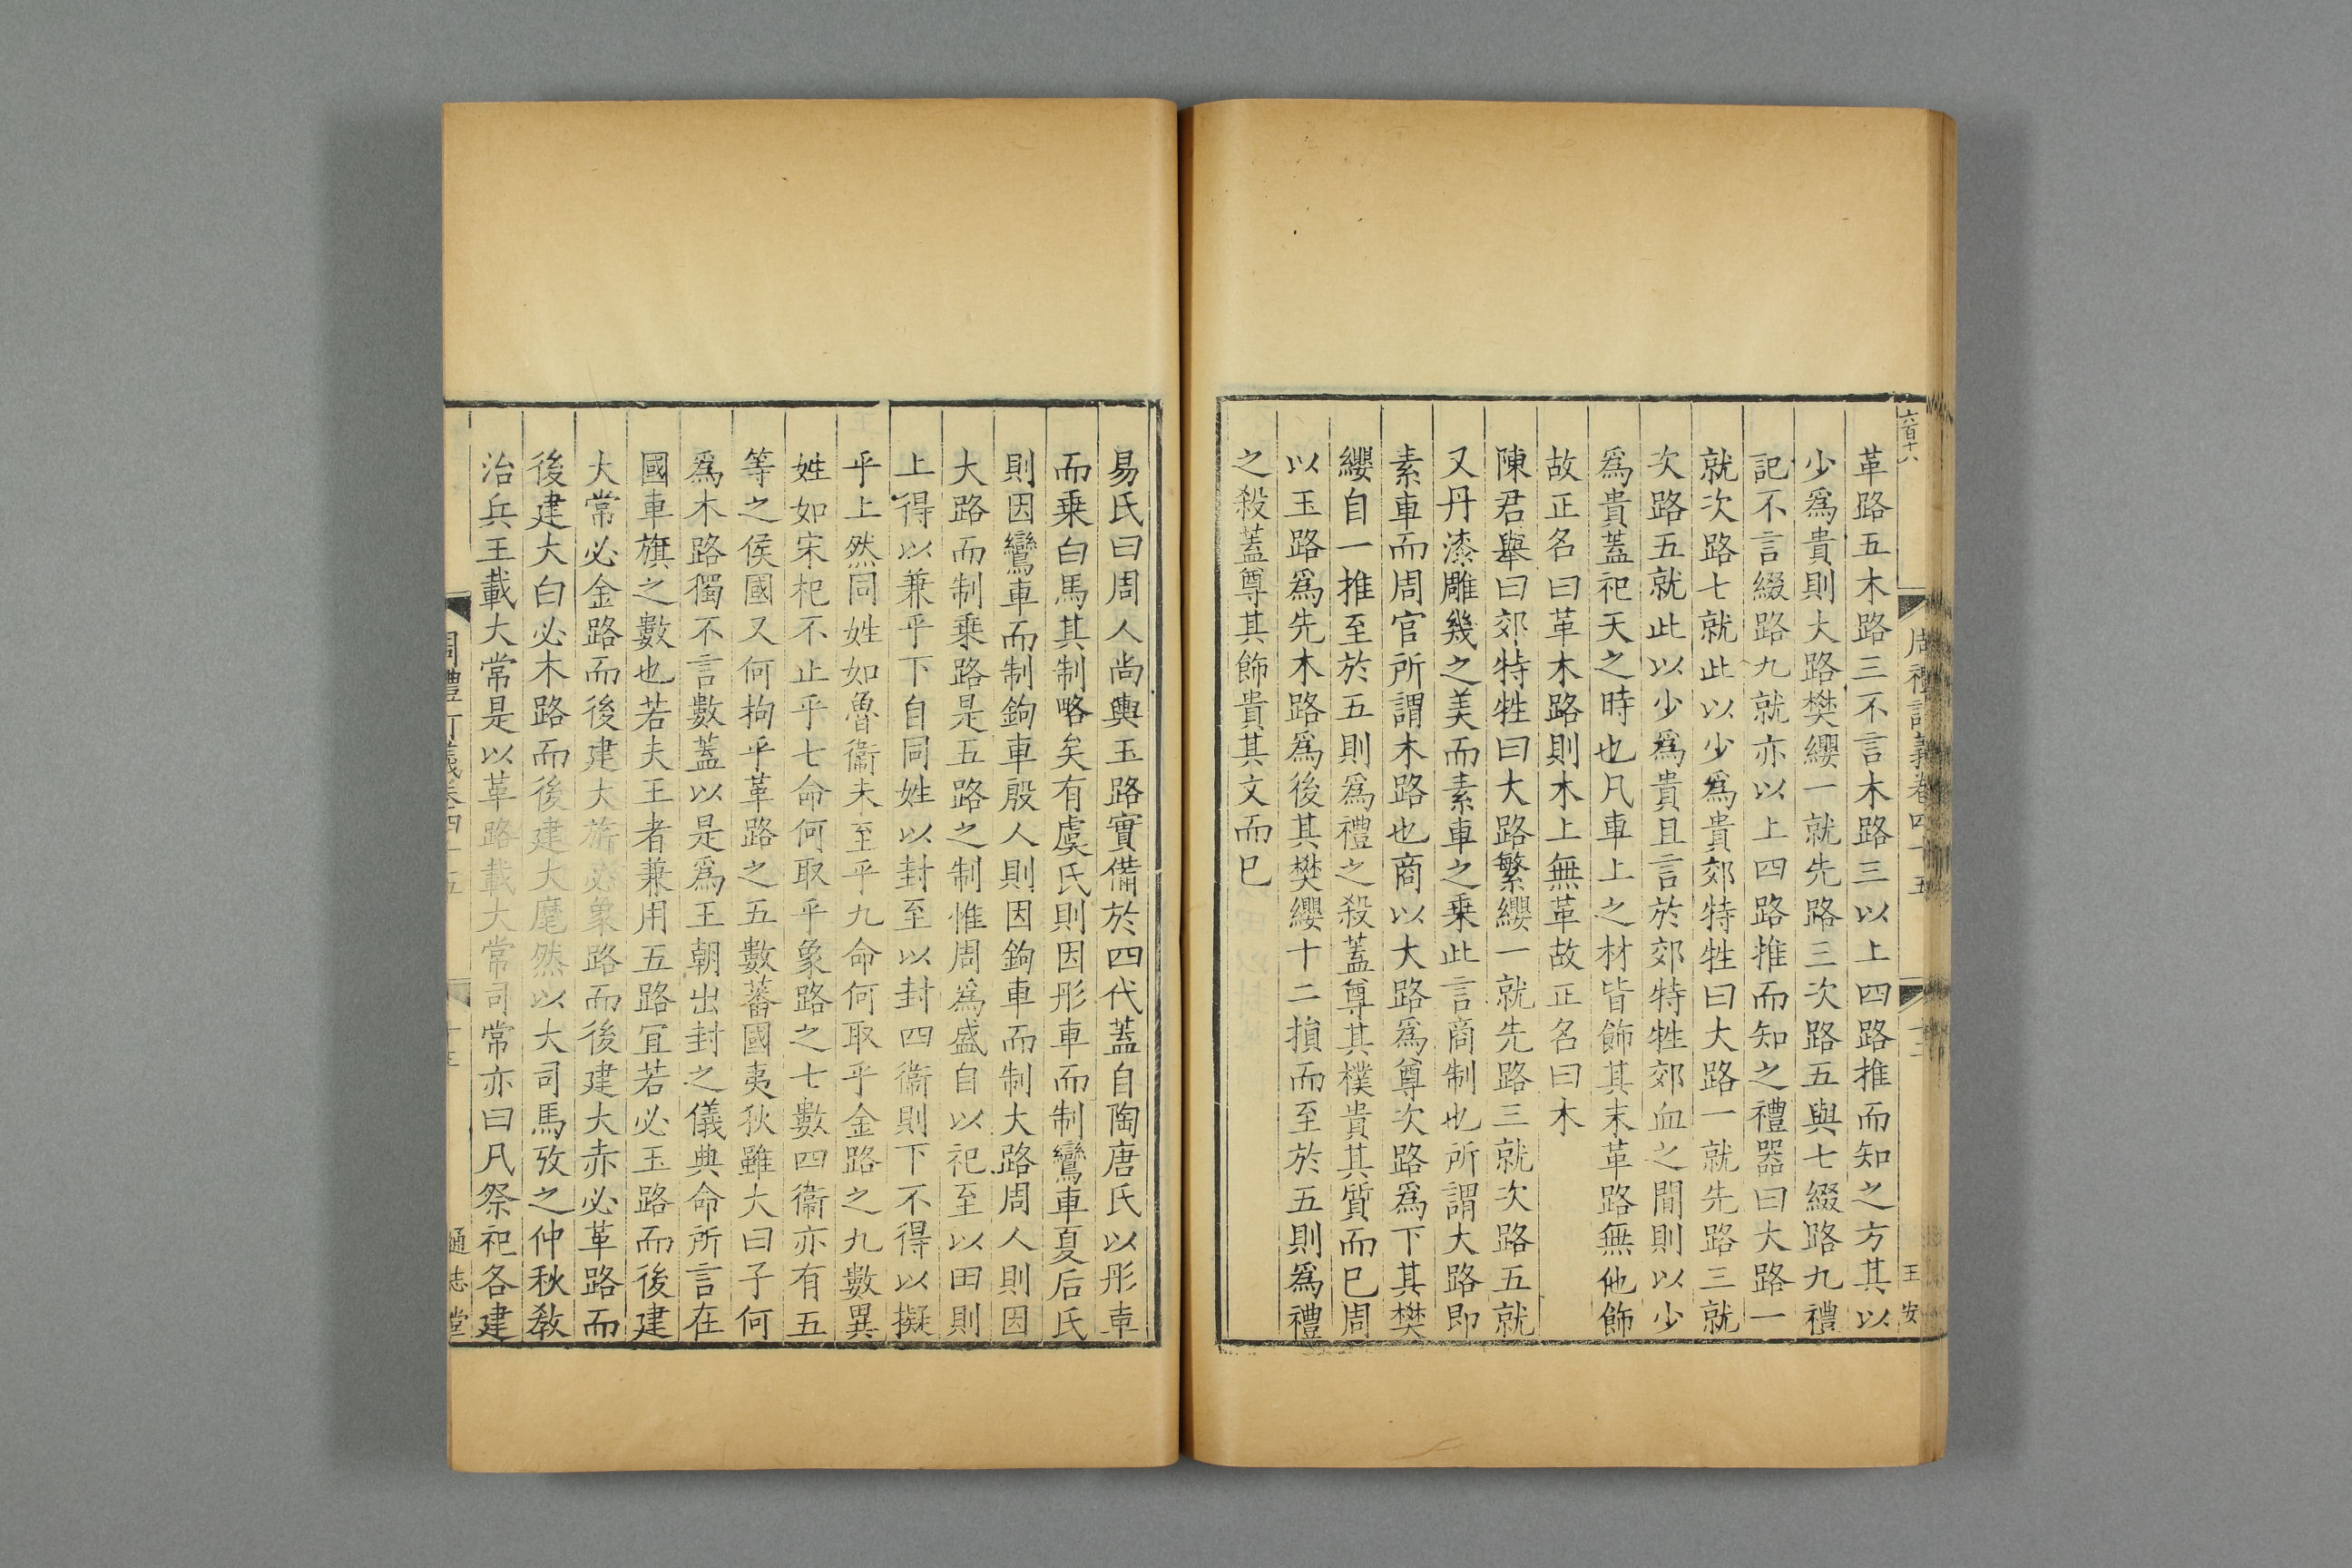 六百十八
周禮訂義卷四十五
王安
革路五木路三不言木路三以上四路推而知之方其以
少爲貴則大路樊纓一就先路三次路五與七綴路九禮
記不言綴路九就亦以上四路推而知之禮器曰大路一
就次路七就此以少爲貴郊特牲曰大路一就先路三就
次路五就此以少爲貴且言於郊特牲郊血之間則以少
爲貴蓋祀天之時也凡車上之材皆飾其末革路無他飾
故正名曰革木路則木上無革故正名曰木
陳君舉曰郊特牲曰大路繁纓一就先路三就次路五就
又丹漆雕幾之美而素車之乘此言商制也所謂大路即
素車而周官所謂木路也商以大路爲尊次路爲下其樊
纓自一推至於五則爲禮之殺蓋尊其樸貴其質而巳周
以玉路爲先木路爲後其樊纓十二損而至於五則爲禮
之殺蓋尊其飾貴其文而巳
易氏曰周人尚輿玉路實備於四代蓋自陶唐氏以彤車
而乘白馬其制略矣有虞氏則因彤車而制鸞車夏后氏
則因鸞車而制鉤車殷人則因鉤車而制大路周人則因
大路而制乘路是五路之制惟周爲盛自以祀至以田則
上得以兼乎下自同姓以封至以封四衞則下不得以擬
乎上然同姓如魯衞未至乎九命何取乎金路之九數異
姓如宋杞不止乎七命何取乎象路之七數四衞亦有五
等之侯國又何拘乎革路之五數蕃國夷狄雖大曰子何
爲木路獨不言數蓋以是爲王朝出封之儀典命所言在
國車旗之數也若夫王者兼用五路宜若必玉路而後建
大常必金路而後建大旂必象路而後建大赤必革路而
後建大白必木路而後建大麾然以大司馬攷之仲秋敎
治兵王載大常是以革路載大常司常亦曰凡祭祀各建
周禮訂義卷四十五
通志堂